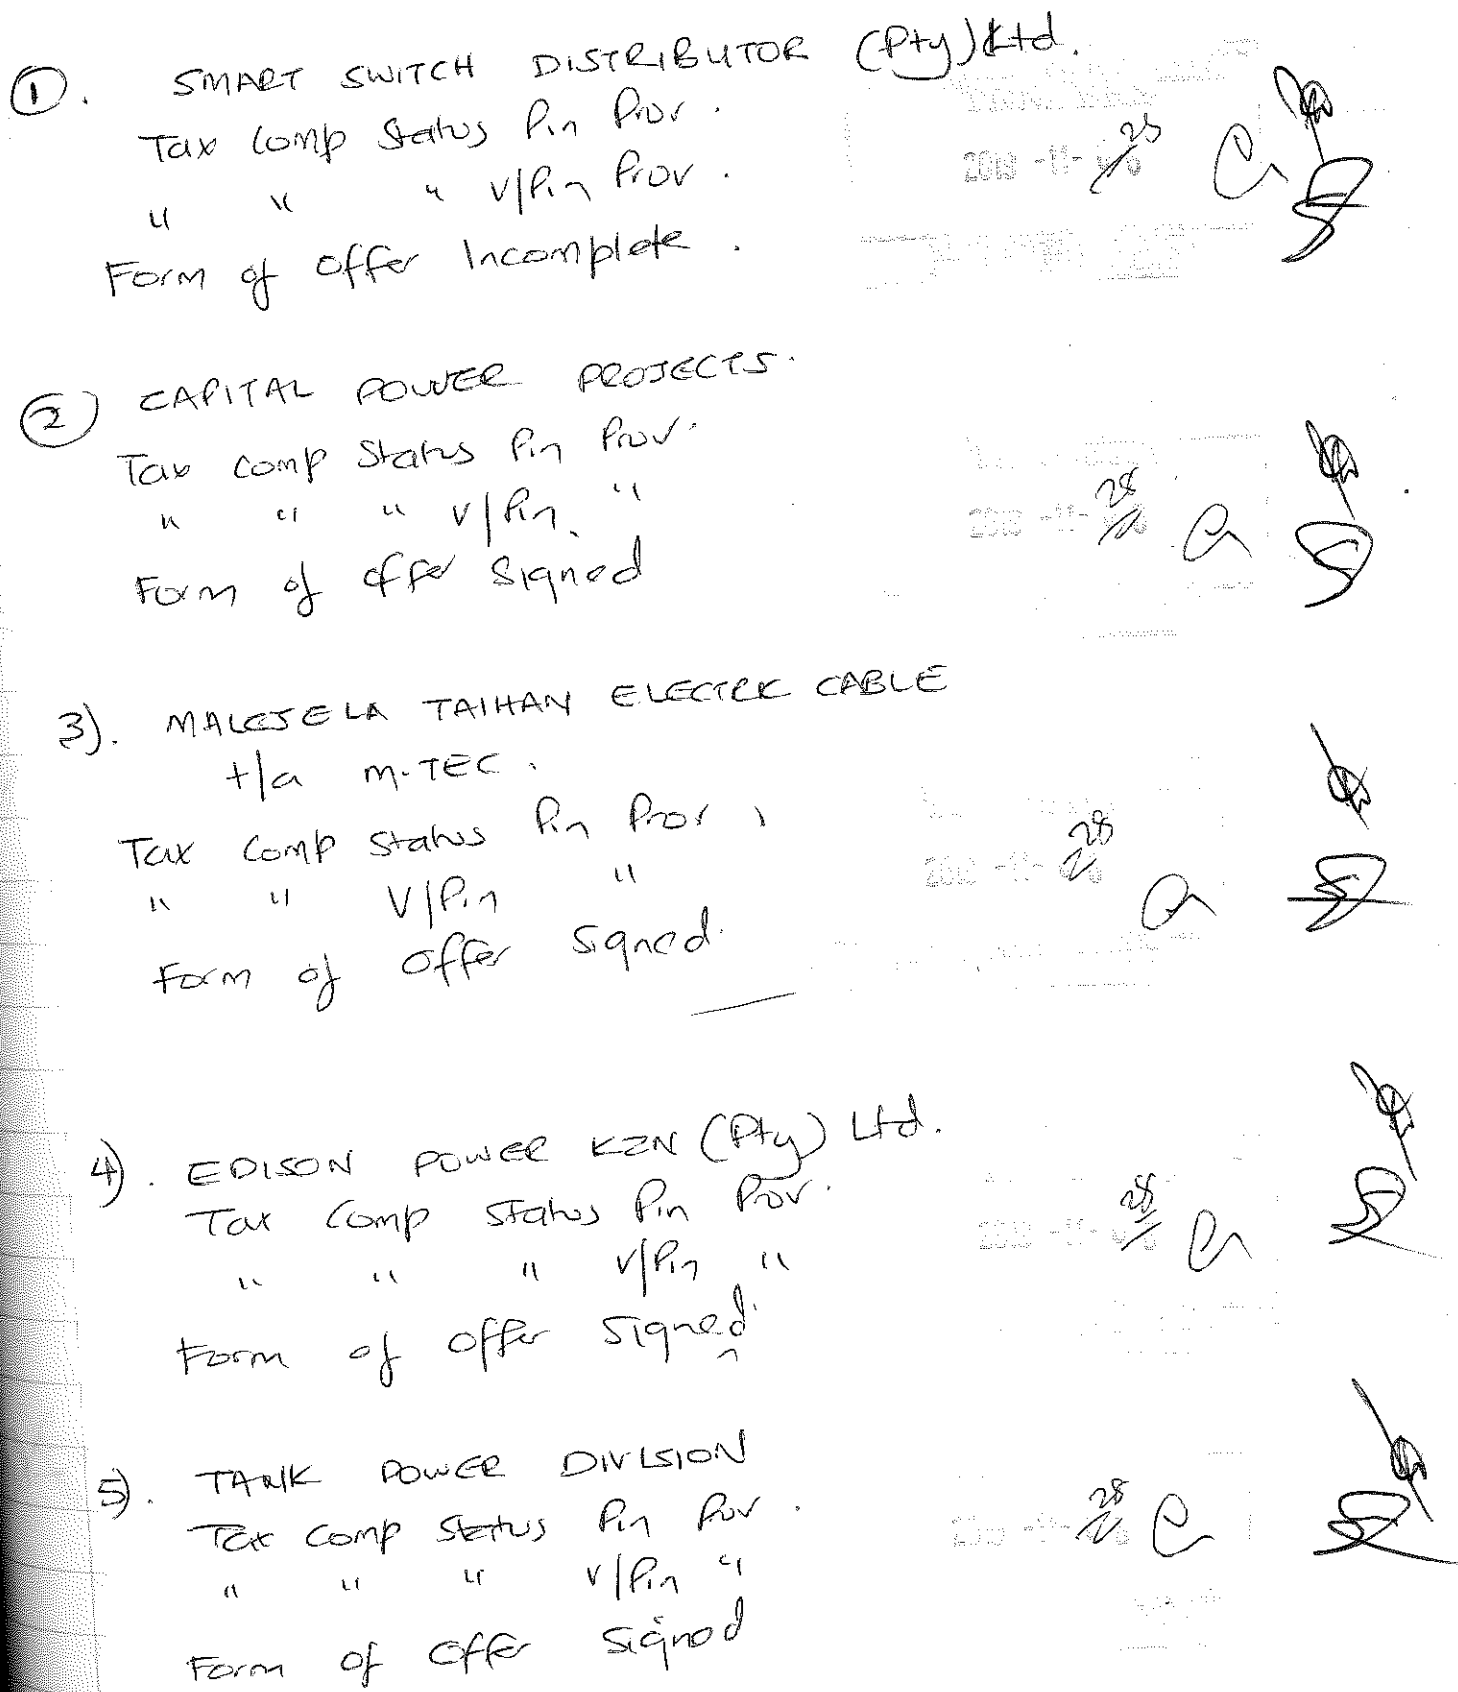 1. SMART SWITCH DISTRIBUTOR (Pty) Ltd.
Tax Comp Status Pin Prov.
" " " V/Pin Prov.
Form of Offer Incomplete.
2) CAPITAL POWER PROJECTS.
Tax Comp Status Pin Prov.
" " " V/Pin "
Form of Offer Signed
3). MALESELA TAIHAN ELECTRIC CABLE
t/a M-TEC.
Tax Comp Status Pin Prov,
" " V/Pin "
Form of Offer Signed.
4). EDISON POWER KZN (Pty) Ltd.
Tax Comp Status Pin Prov.
" " " V/Pin "
Form of Offer Signed.
5). TANK POWER DIVISION
Tax Comp Status Pin Prov.
" " " V/Pin "
Form of Offer Signed
28
28
28
28
28